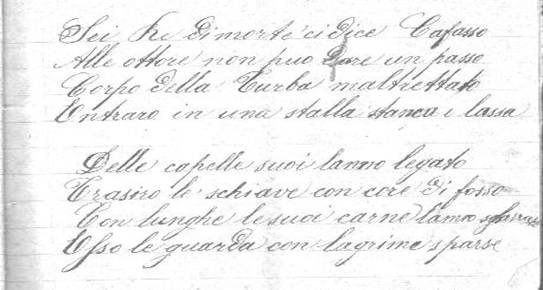 Sei Re di morte ci dice Cafasso
Alle ottore non puo dare un passo
Corpo della Turba maltrettato
Entraro in una stalla stanca e lassa
Delle capelle suoi lanno legato
Trasiro le schiave con core di fosso
Con lunghe le suoi carne lanno
Esso le guarda con lagrime sparse